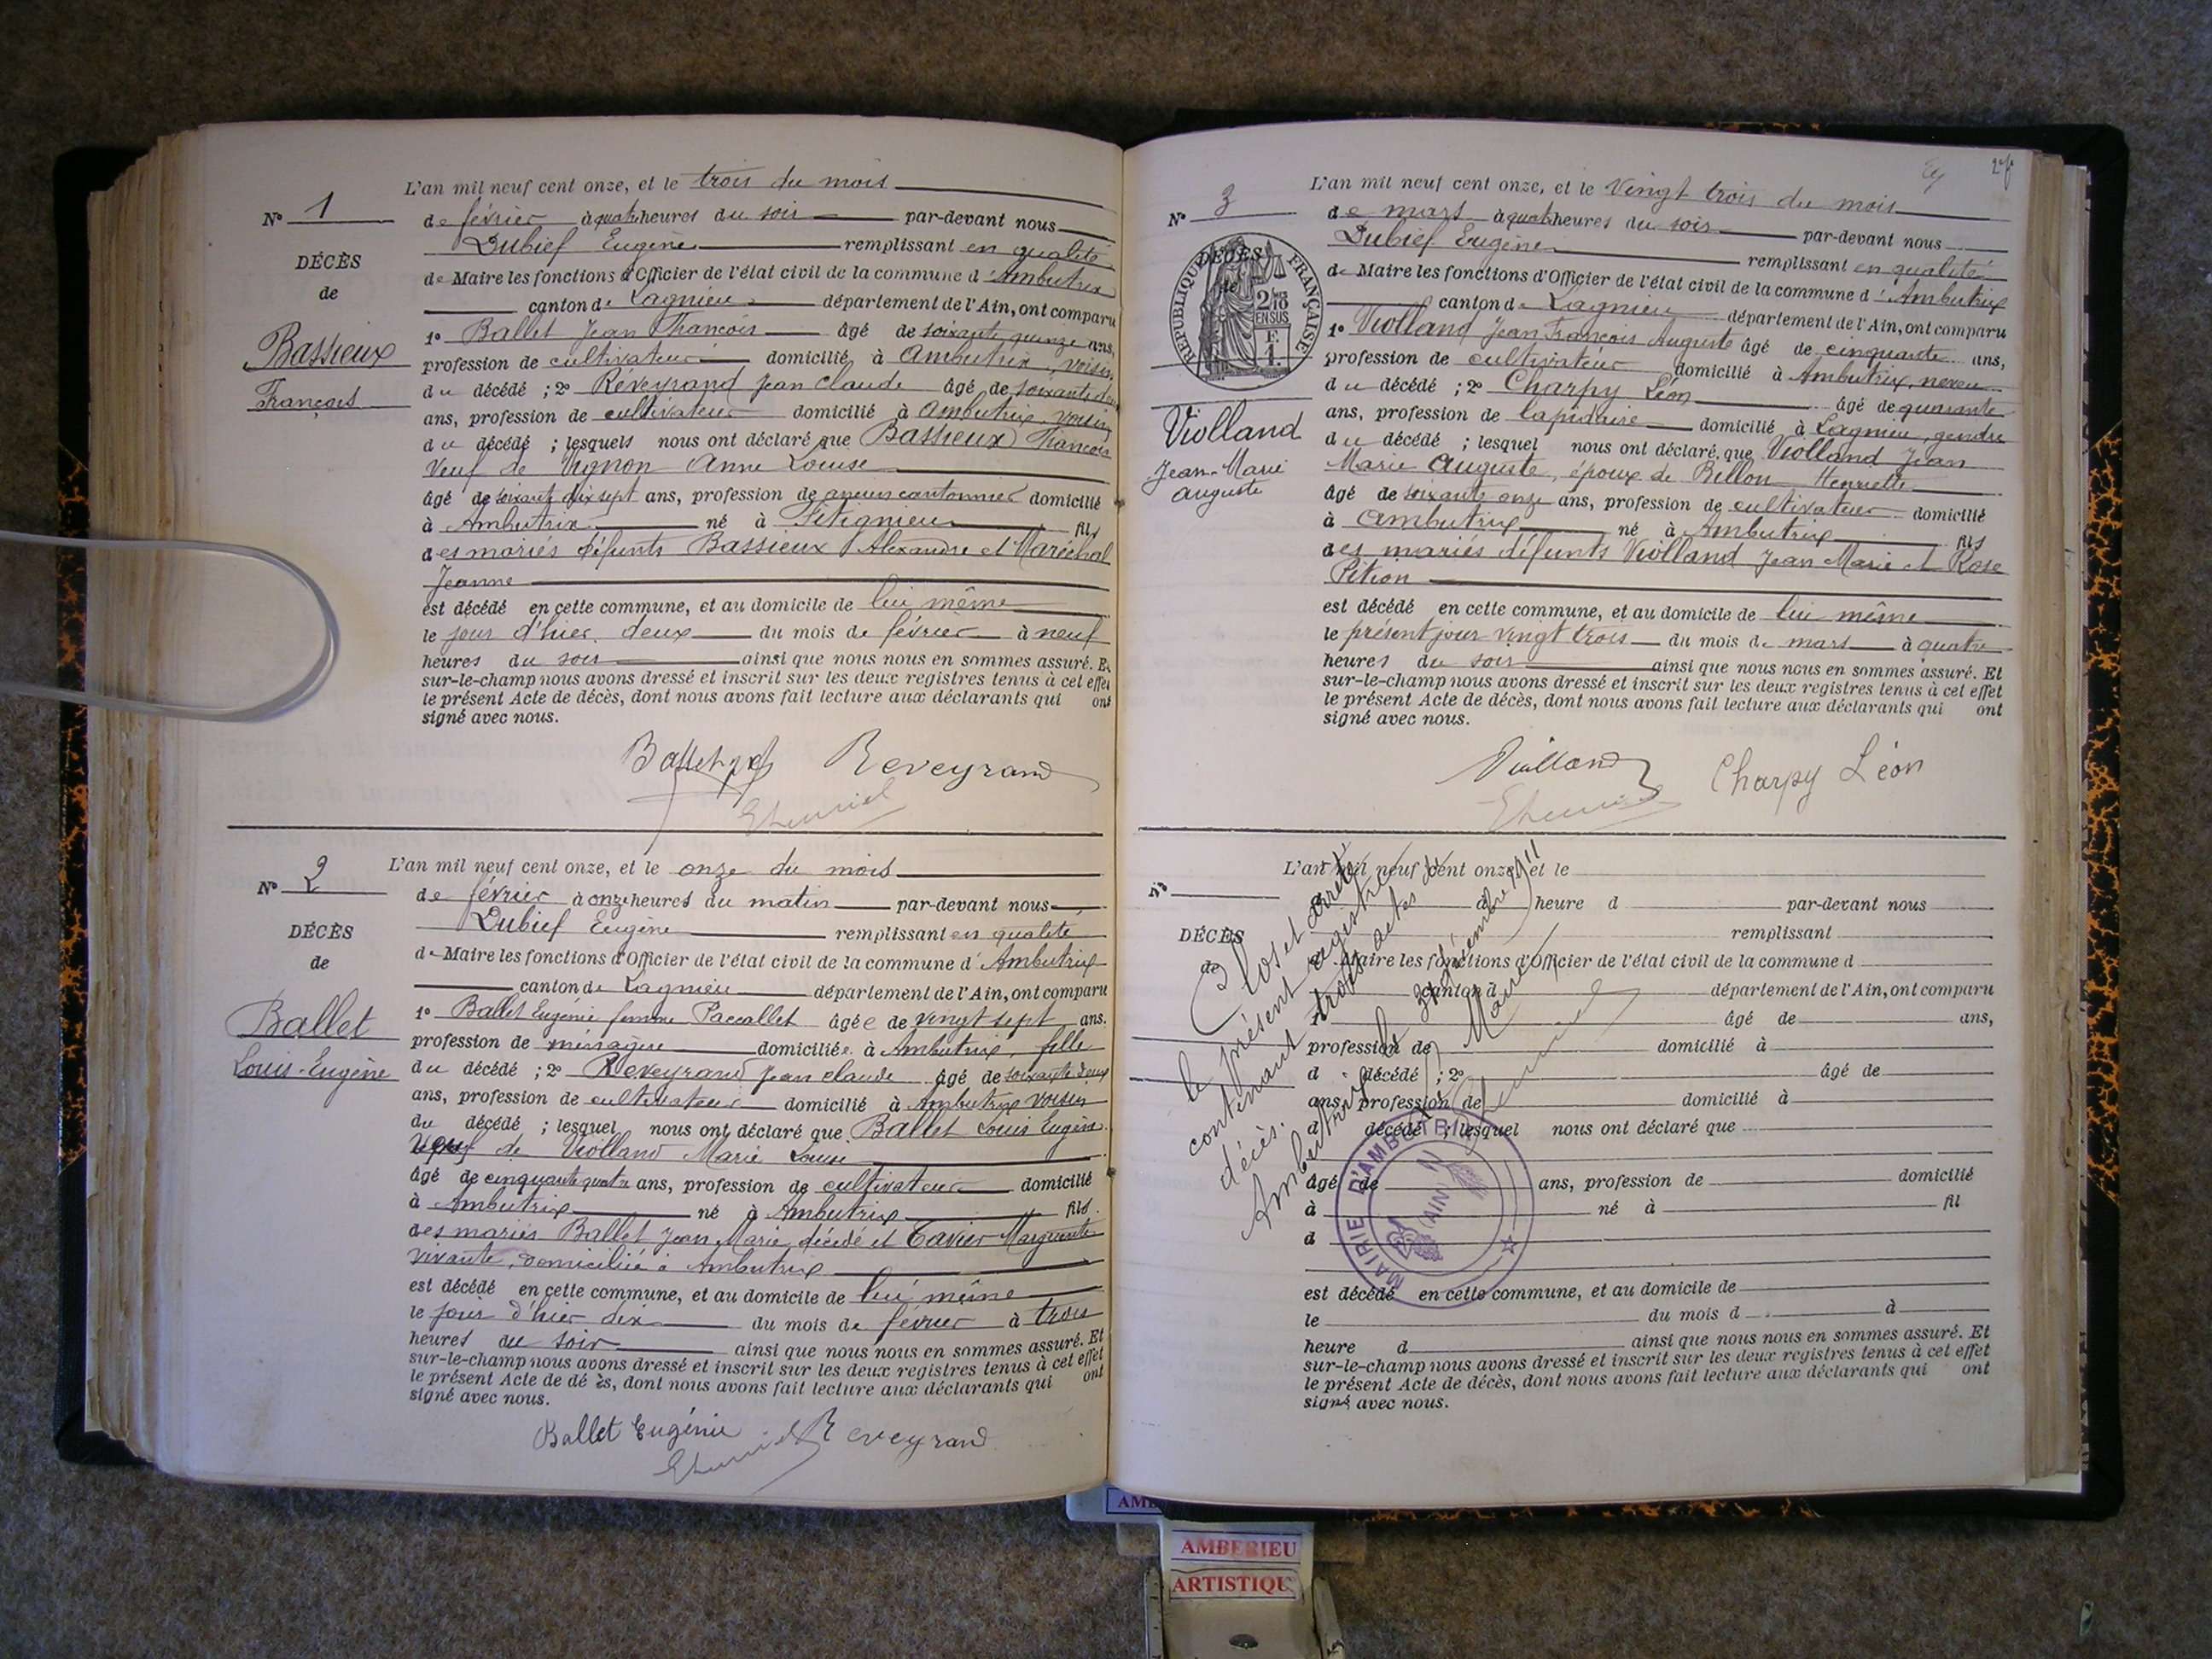 L'an mil neuf cent onze, et le trois du mois
N° 1
de février à quatre heures du soir par-devant nous
Dubief Eugène remplissant en qualité
DÉCÈS
de
Bassieux
François
de Maire les fonctions d'Officier de l'état civil de la commune d'Ambutrix
canton de Lagnieu département de l'Ain, ont comparu
1° Ballet Jean François âgé de soixante quinze ans,
profession de cultivateur domicilié à Ambutrix, voisin
du décédé ; 2° Réveyrand Jean Claude âgé de soixante deux
ans, profession de cultivateur domicilié à Ambutrix, voisin
du décédé ; lesquels nous ont déclaré que Bassieux François
Veuf de Vignon Anne Louise
âgé de soixante dix sept ans, profession de ancien cantonnier domicilié
à Ambutrix né à Fitignieu fils
des mariés défunts Bassieux Alexandre et Maréchal
Jeanne
est décédé en cette commune, et au domicile de lui même
le jour d'hier deux du mois de février à neuf
heures du soir ainsi que nous nous en sommes assuré. Et
sur-le-champ nous avons dressé et inscrit sur les deux registres tenus à cet effet
le présent Acte de décès, dont nous avons fait lecture aux déclarants qui ont
signé avec nous.
Reveyrand
L'an mil neuf cent onze, et le onze du mois
N° 2
de février à onze heures du matin par-devant nous
Dubief Eugène remplissant en qualité
DÉCÈS
de
Ballet
Louis-Eugène
de Maire les fonctions d'Officier de l'état civil de la commune d'Ambutrix
canton de Lagnieu département de l'Ain, ont comparu
1° Ballet Eugénie femme Paccallet âgée de vingt sept ans.
profession de ménagère domiciliée à Ambutrix, fille
du décédé ; 2° Reveyrand Jean Claude âgé de soixante deux
ans, profession de cultivateur domicilié à Ambutrix voisin
du décédé ; lesquel nous ont déclaré que Ballet Louis Eugène
veuf de Violland Marie Louise
âgé de cinquante quatre ans, profession de cultivateur domicilié
à Ambutrix né à Ambutrix fils
des mariés Ballet Jean Marie, décédé et Tavier Marguerite
vivante, domiciliée à Ambutrix
est décédé en cette commune, et au domicile de lui même
le jour d'hier dix du mois de février à trois
heures du soir ainsi que nous nous en sommes assuré. Et
sur-le-champ nous avons dressé et inscrit sur les deux registres tenus à cet effet
le présent Acte de dé ès, dont nous avons fait lecture aux déclarants qui ont
signé avec nous.
Ballet Eugénie Reveyrand
L'an mil neuf cent onze, et le vingt trois du mois
N° 3
de mars à quatre heures du soir par-devant nous
Dubief Eugène remplissant en qualité
DÉCÈS
de
RÉPUBLIQUE FRANÇAISE
2/10 EN SUS
F. 1.
Violland
Jean-Marie
Auguste
de Maire les fonctions d'Officier de l'état civil de la commune d'Ambutrix
canton de Lagnieu département de l'Ain, ont comparu
1° Violland Jean François Auguste âgé de cinquante ans,
profession de cultivateur domicilié à Ambutrix, neveu
du décédé ; 2° Charpy Léon âgé de quarante
ans, profession de lapidaire domicilié à Lagnieu, gendre
du décédé ; lesquel nous ont déclaré que Violland Jean
Marie Auguste, époux de Billon Henriette
âgé de soixante onze ans, profession de cultivateur domicilié
à Ambutrix né à Ambutrix fils
des mariés défunts Violland Jean Marie et Rose
Pition
est décédé en cette commune, et au domicile de lui même
le présent jour vingt trois du mois de mars à quatre
heures du soir ainsi que nous nous en sommes assuré. Et
sur-le-champ nous avons dressé et inscrit sur les deux registres tenus à cet effet
le présent Acte de décès, dont nous avons fait lecture aux déclarants qui ont
signé avec nous.
Violland Charpy Léon
L'an mil neuf cent onze, et le
N°
d heure d par-devant nous
remplissant
DÉCÈS
de
d Maire les fonctions d'Officier de l'état civil de la commune d
canton d département de l'Ain, ont comparu
1° âgé de ans,
profession de domicilié à
d décédé ; 2° âgé de
ans, profession de domicilié à
d décédé ; lesquel nous ont déclaré que
âgé de ans, profession de domicilié
à né à fil
d
est décédé en cette commune, et au domicile de
le du mois d à
heure d ainsi que nous nous en sommes assuré. Et
sur-le-champ nous avons dressé et inscrit sur les deux registres tenus à cet effet
le présent Acte de décès, dont nous avons fait lecture aux déclarants qui ont
signé avec nous.
Clos et arrêté
le présent registre
contenant trois actes de
décès.
Ambutrix le 31 décembre 1911
Le Maire
MAIRIE D'AMBUTRIX
(AIN)
AMBERIEU
ARTISTIQU